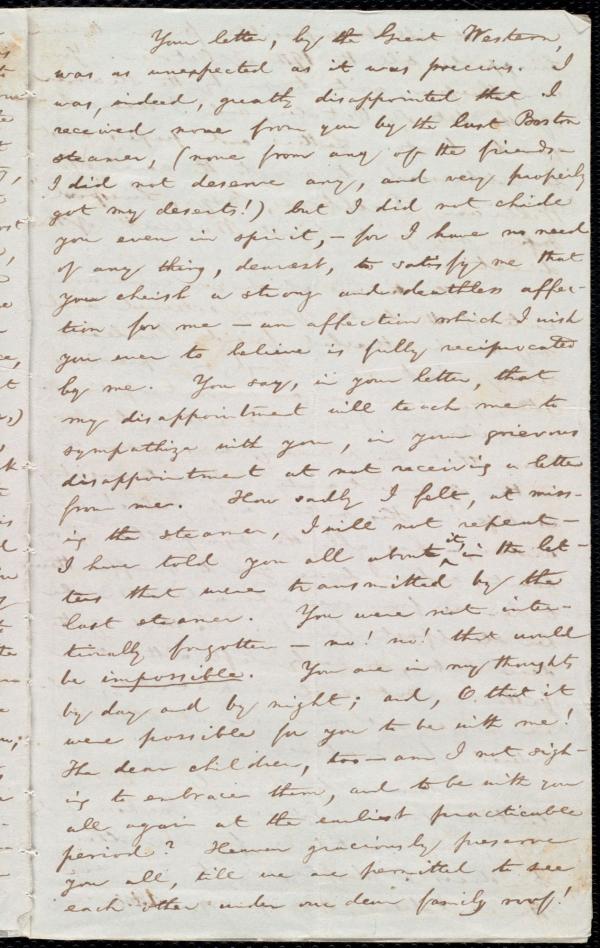 Your letter, by the Great Western,
was as unexpected as it was precious. I
was, indeed, greatly disappointed that I
received none from you by the last Boston
steamer, (none from any of the friends—
I did not deserve any, and very properly
got my deserts!) but I did not chide
you even in spirit,— for I have no need
of any thing, dearest, to satisfy me that
you cherish a strong and deathless affec-
tion for me — an affection which I wish
you ever to believe is fully reciprocated
by me. You say, in your letter, that
my disappointment will teach me to
sympathize with you, in your grievous
disappointment at not receiving a letter
from me. How sadly I felt, at miss-
ing the steamer, I will not repeat—
I have told you all about it, in the let-
ters that were transmitted by the
last steamer. You were not inten-
tionally forgotten — no! no! that would
be impossible. You are in my thoughts
by day and by night; and, O that it
were possible for you to be with me!
The dear children, too — am I not sigh-
ing to embrace them, and to be with you
all again at the earliest practicable
period? Heaven graciously preserve
you all, till we are permitted to see
each other under our dear family roof!